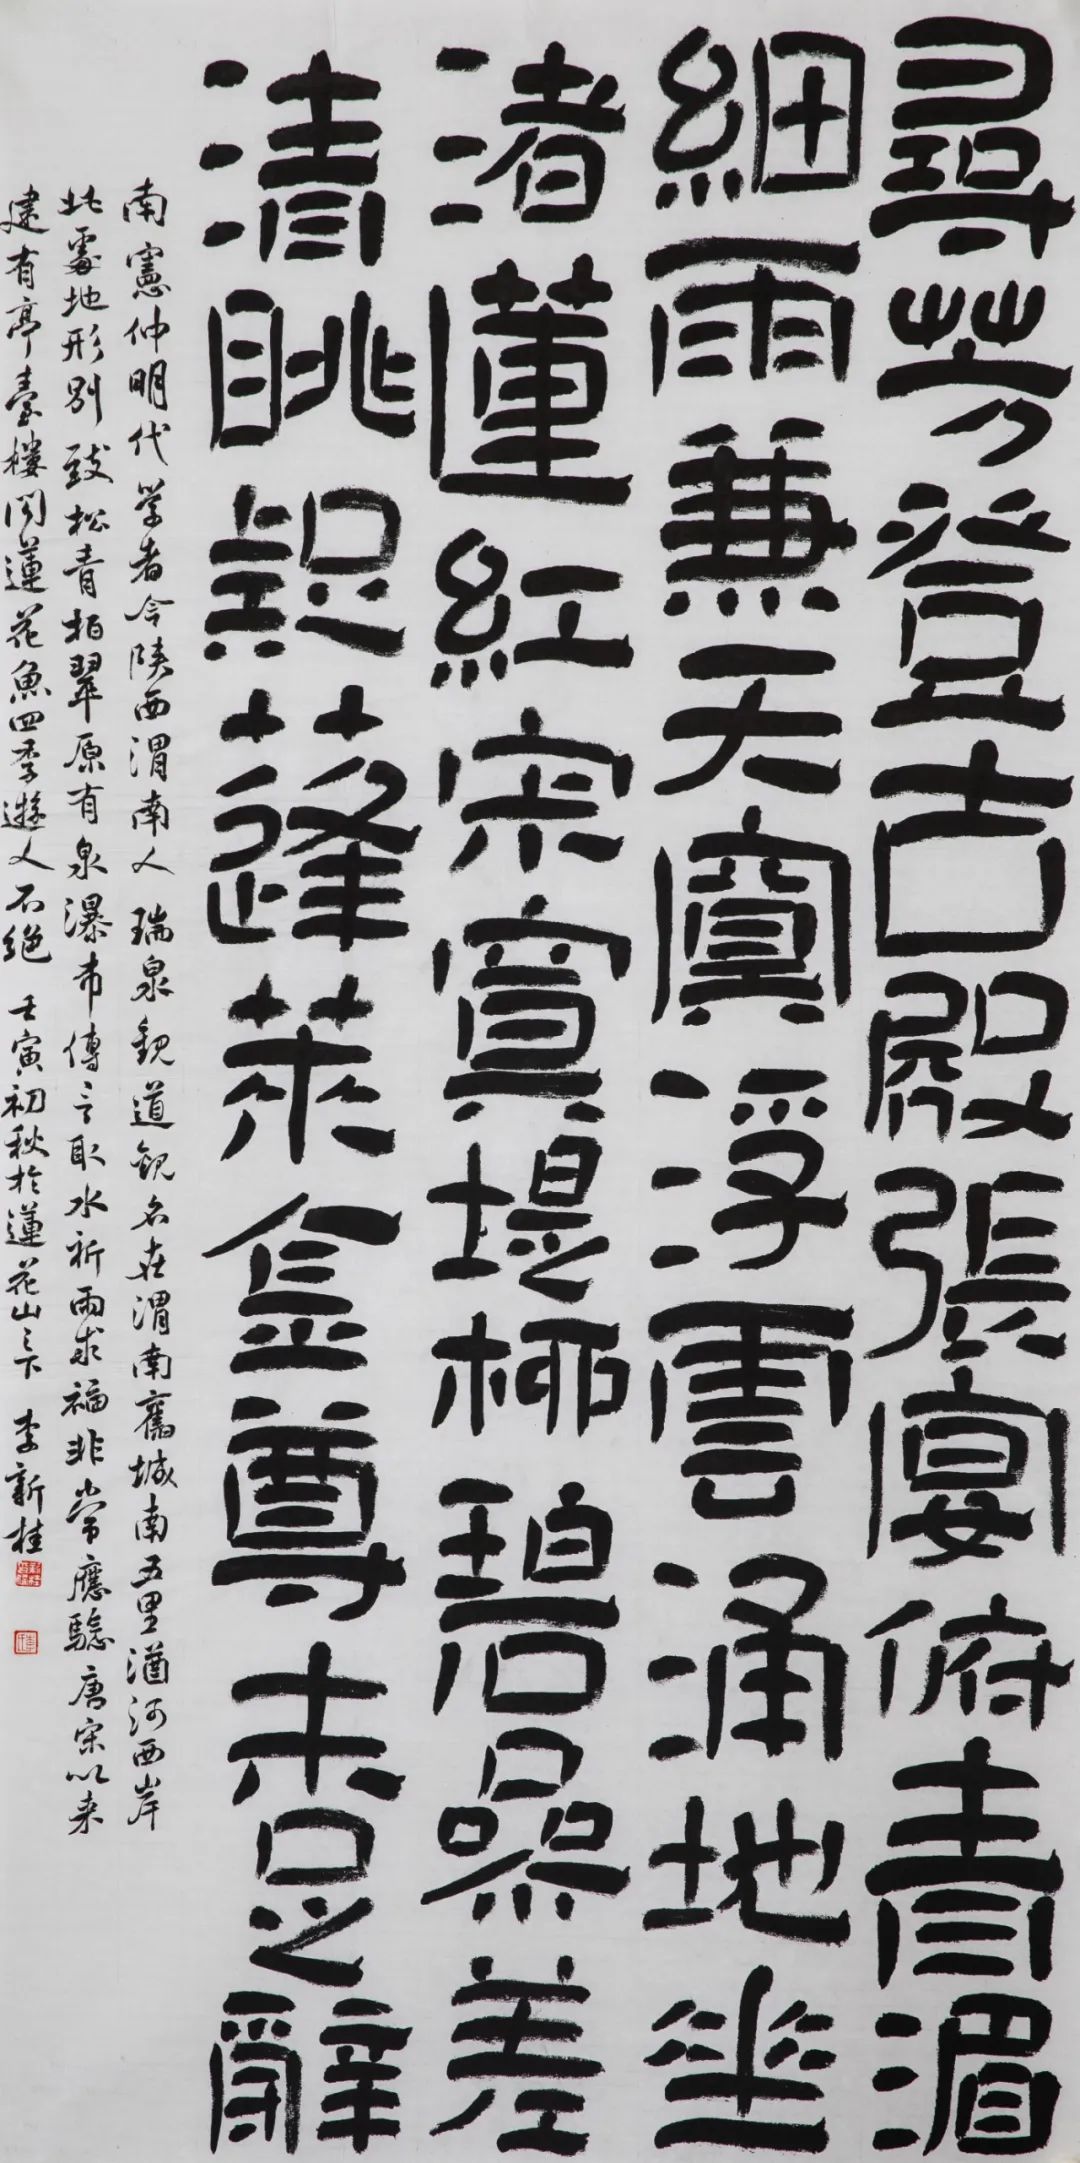 尋芳登古殿張宴俯青湄
細雨兼天冥浮雲涌地垂
渚蓮紅寂寞堤柳碧參差
清眺疑蓬萊金尊未足辭
南憲仲明代学者今陝西渭南人 瑞泉觀道觀名在渭南舊城南五里湭河西岸
此處地形別致松青柏翠原有泉瀑布傳言取水祈雨求福非常應驗唐宋以来
建有亭臺樓閣蓮花魚四季遊人不絕 壬寅初秋於蓮花山之下 李新桂